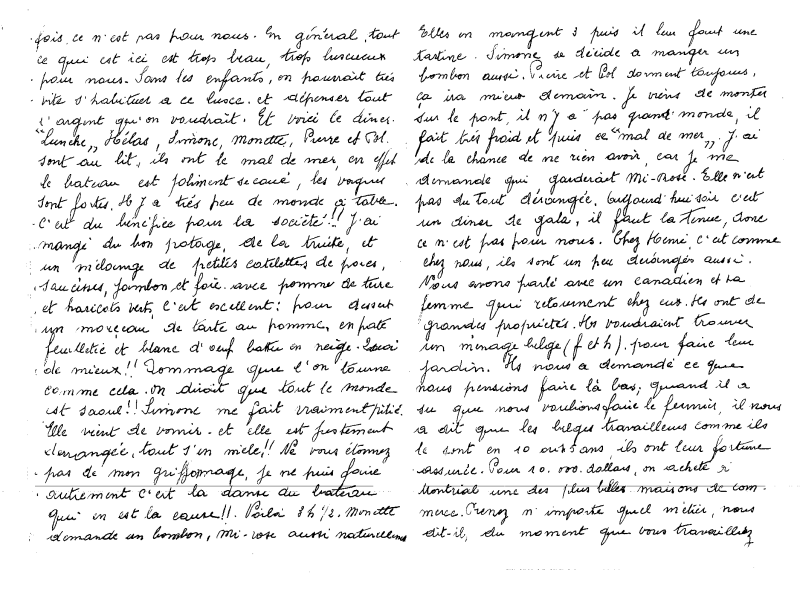 fois, ce n'est pas pour nous. En général, tout
ce qui est ici est trop beau, trop luscueux
pour nous. Sans les enfants, on pourrait très
vite s'habituer a ce lusce. et dépenser tout
l'argent qu'on voudrait. Et voici le diner.
"Lunche,, Hélas, Simone, Monette, Pierre et Pol.
sont au lit, ils ont le mal de mer, en effet
le bateau est joliment secoué, les vagues
sont fortes. Il y a très peu de monde à table.
C'est du bénéfice pour la société!! J'ai
mangé du bon potage, de la truite, et
un mélange de petites cotelettes de porcs,
saucisses, jambon et foie. avec pomme de terre
et haricots verts, c'est excellent: pour dessert
un morceau de tarte au pomme, en pate
feuilletée et blanc d'oeuf battu en neige. Quoi
de mieux!! Dommage que l'on tourne
comme cela. on dirait que tout le monde
est saoul!! Simone me fait vraiment pitié.
Elle vient de vomir. et elle est justement
dérangée, tout s'en mèle!! Ne vous étonnez
pas de mon griffonnage, je ne puis faire
autrement c'est la danse du bateau
qui en est la cause!!. Voilà 3h 1/2. Monette
demande un bonbon, Mi-rose aussi naturellement
Elles en mangent 3 puis il leur faut une
tartine. Simone se décide a manger un
bonbon aussi. Pierre et Pol dorment toujours,
ça ira mieux demain. Je viens de monter
sur le pont, il n'y a pas grand monde, il
fait très froid et puis ce "mal de mer,, J'ai
de la chance de ne rien avoir, car je me
demande qui garderait Mi-Rose. Elle n'est
pas du tout dérangée. Aujourd'hui soir c'est
un diner de gala, il faut la tenue, donc
ce n'est pas pour nous. Chez Henri, c'est comme
chez nous, ils sont un peu dérangés aussi.
Nous avons parlé avec un canadien et sa
femme qui retournent chez eux. Ils ont de
grandes propriétés. Ils voudraient trouver
un ménage belge (f et h). pour faire leur
jardin. Ils nous a demandé ce que
nous pensions faire là bas; quand il a
su que nous voulions faire le fermier, il nous
a dit que les belges travailleurs comme ils
le sont en 10 ou 15 ans, ils ont leur fortune
assurée. Pour 10.000. dollars, on achète à
Montréal une des plus belles maisons de com-
merce. Prenez n'importe quel métier, nous
dit-il, du moment que vous travailliez